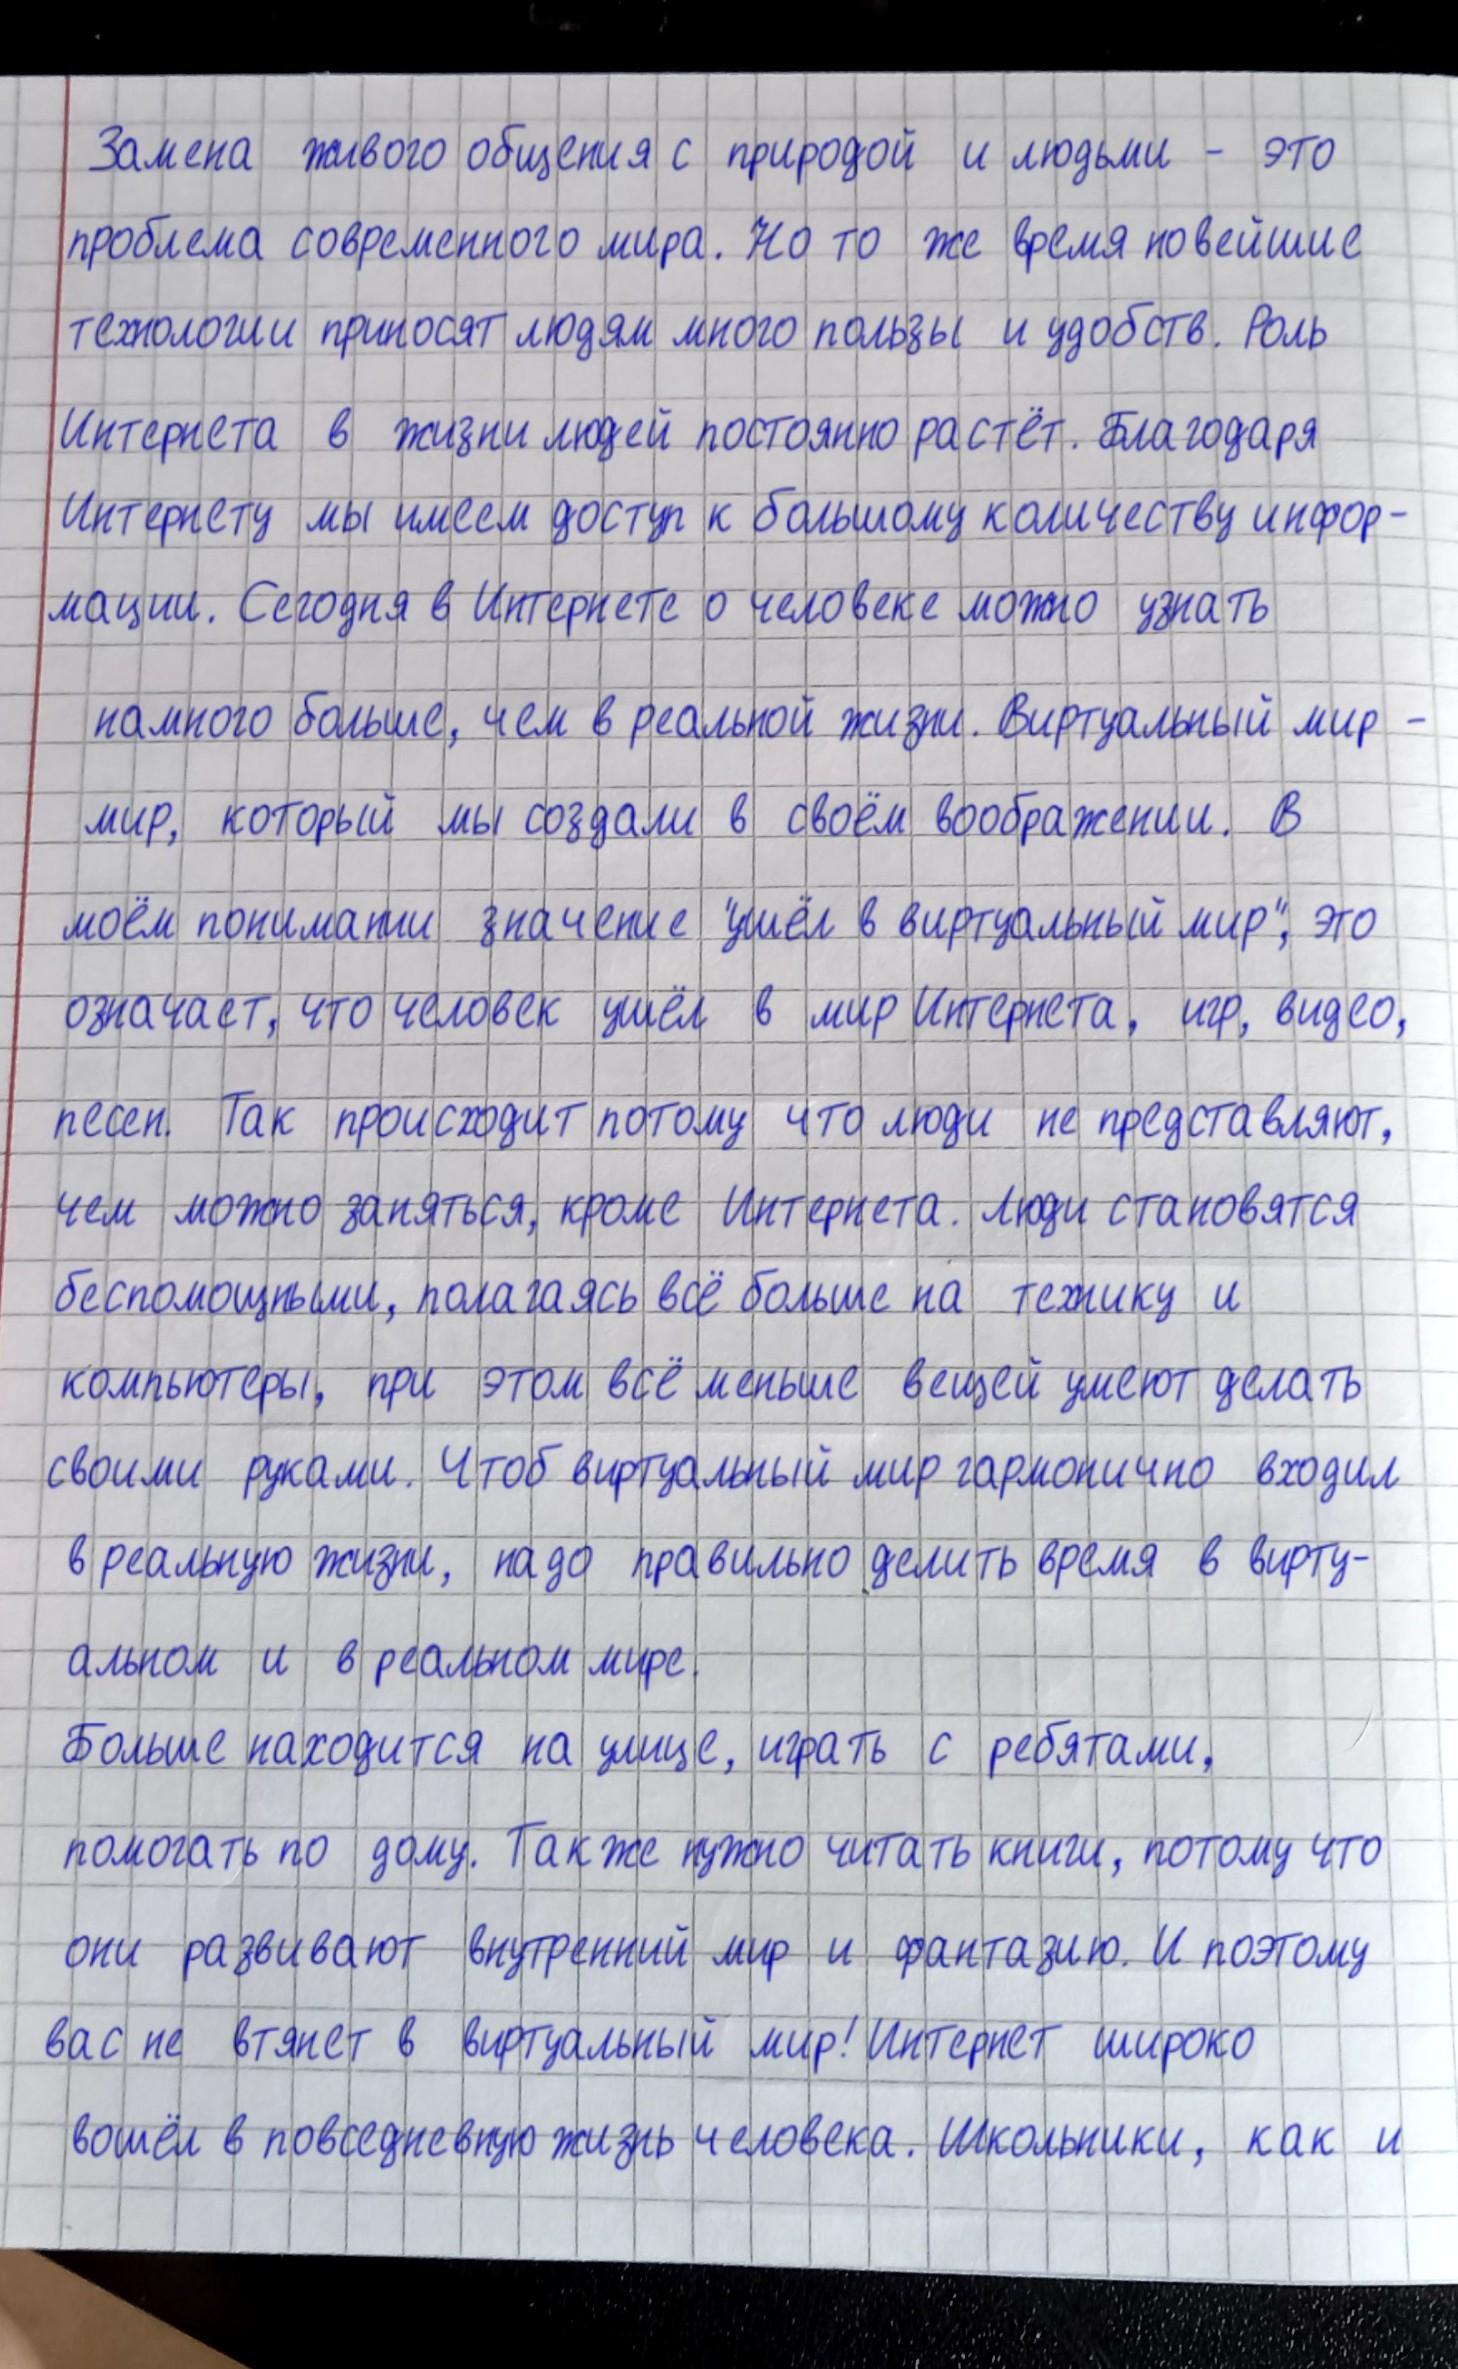 Замена живого общения с природой и людьми - это
проблема современного мира. Но то же время новейшие
технологии приносят людям много пользы и удобств. Роль
Интернета в жизни людей постоянно растёт. Благодаря
Интернету мы имеем доступ к большому количеству инфор-
мации. Сегодня в Интернете о человеке можно узнать
намного больше, чем в реальной жизни. Виртуальный мир -
мир, который мы создали в своём воображении. В
моём понимании значение "ушёл в виртуальный мир", это
означает, что человек ушёл в мир Интернета, игр, видео,
песен. Так происходит потому что люди не представляют,
чем можно заняться, кроме Интернета. Люди становятся
беспомощными, полагаясь всё больше на технику и
компьютеры, при этом всё меньше вещей умеют делать
своими руками. Чтоб виртуальный мир гармонично входил
в реальную жизни, надо правильно делить время в вирту-
альном и в реальном мире.
Больше находится на улице, играть с ребятами,
помогать по дому. Также нужно читать книги, потому что
они развивают внутренний мир и фантазию. И поэтому
вас не втянет в виртуальный мир! Интернет широко
вошёл в повседневную жизнь человека. Школьники, как и